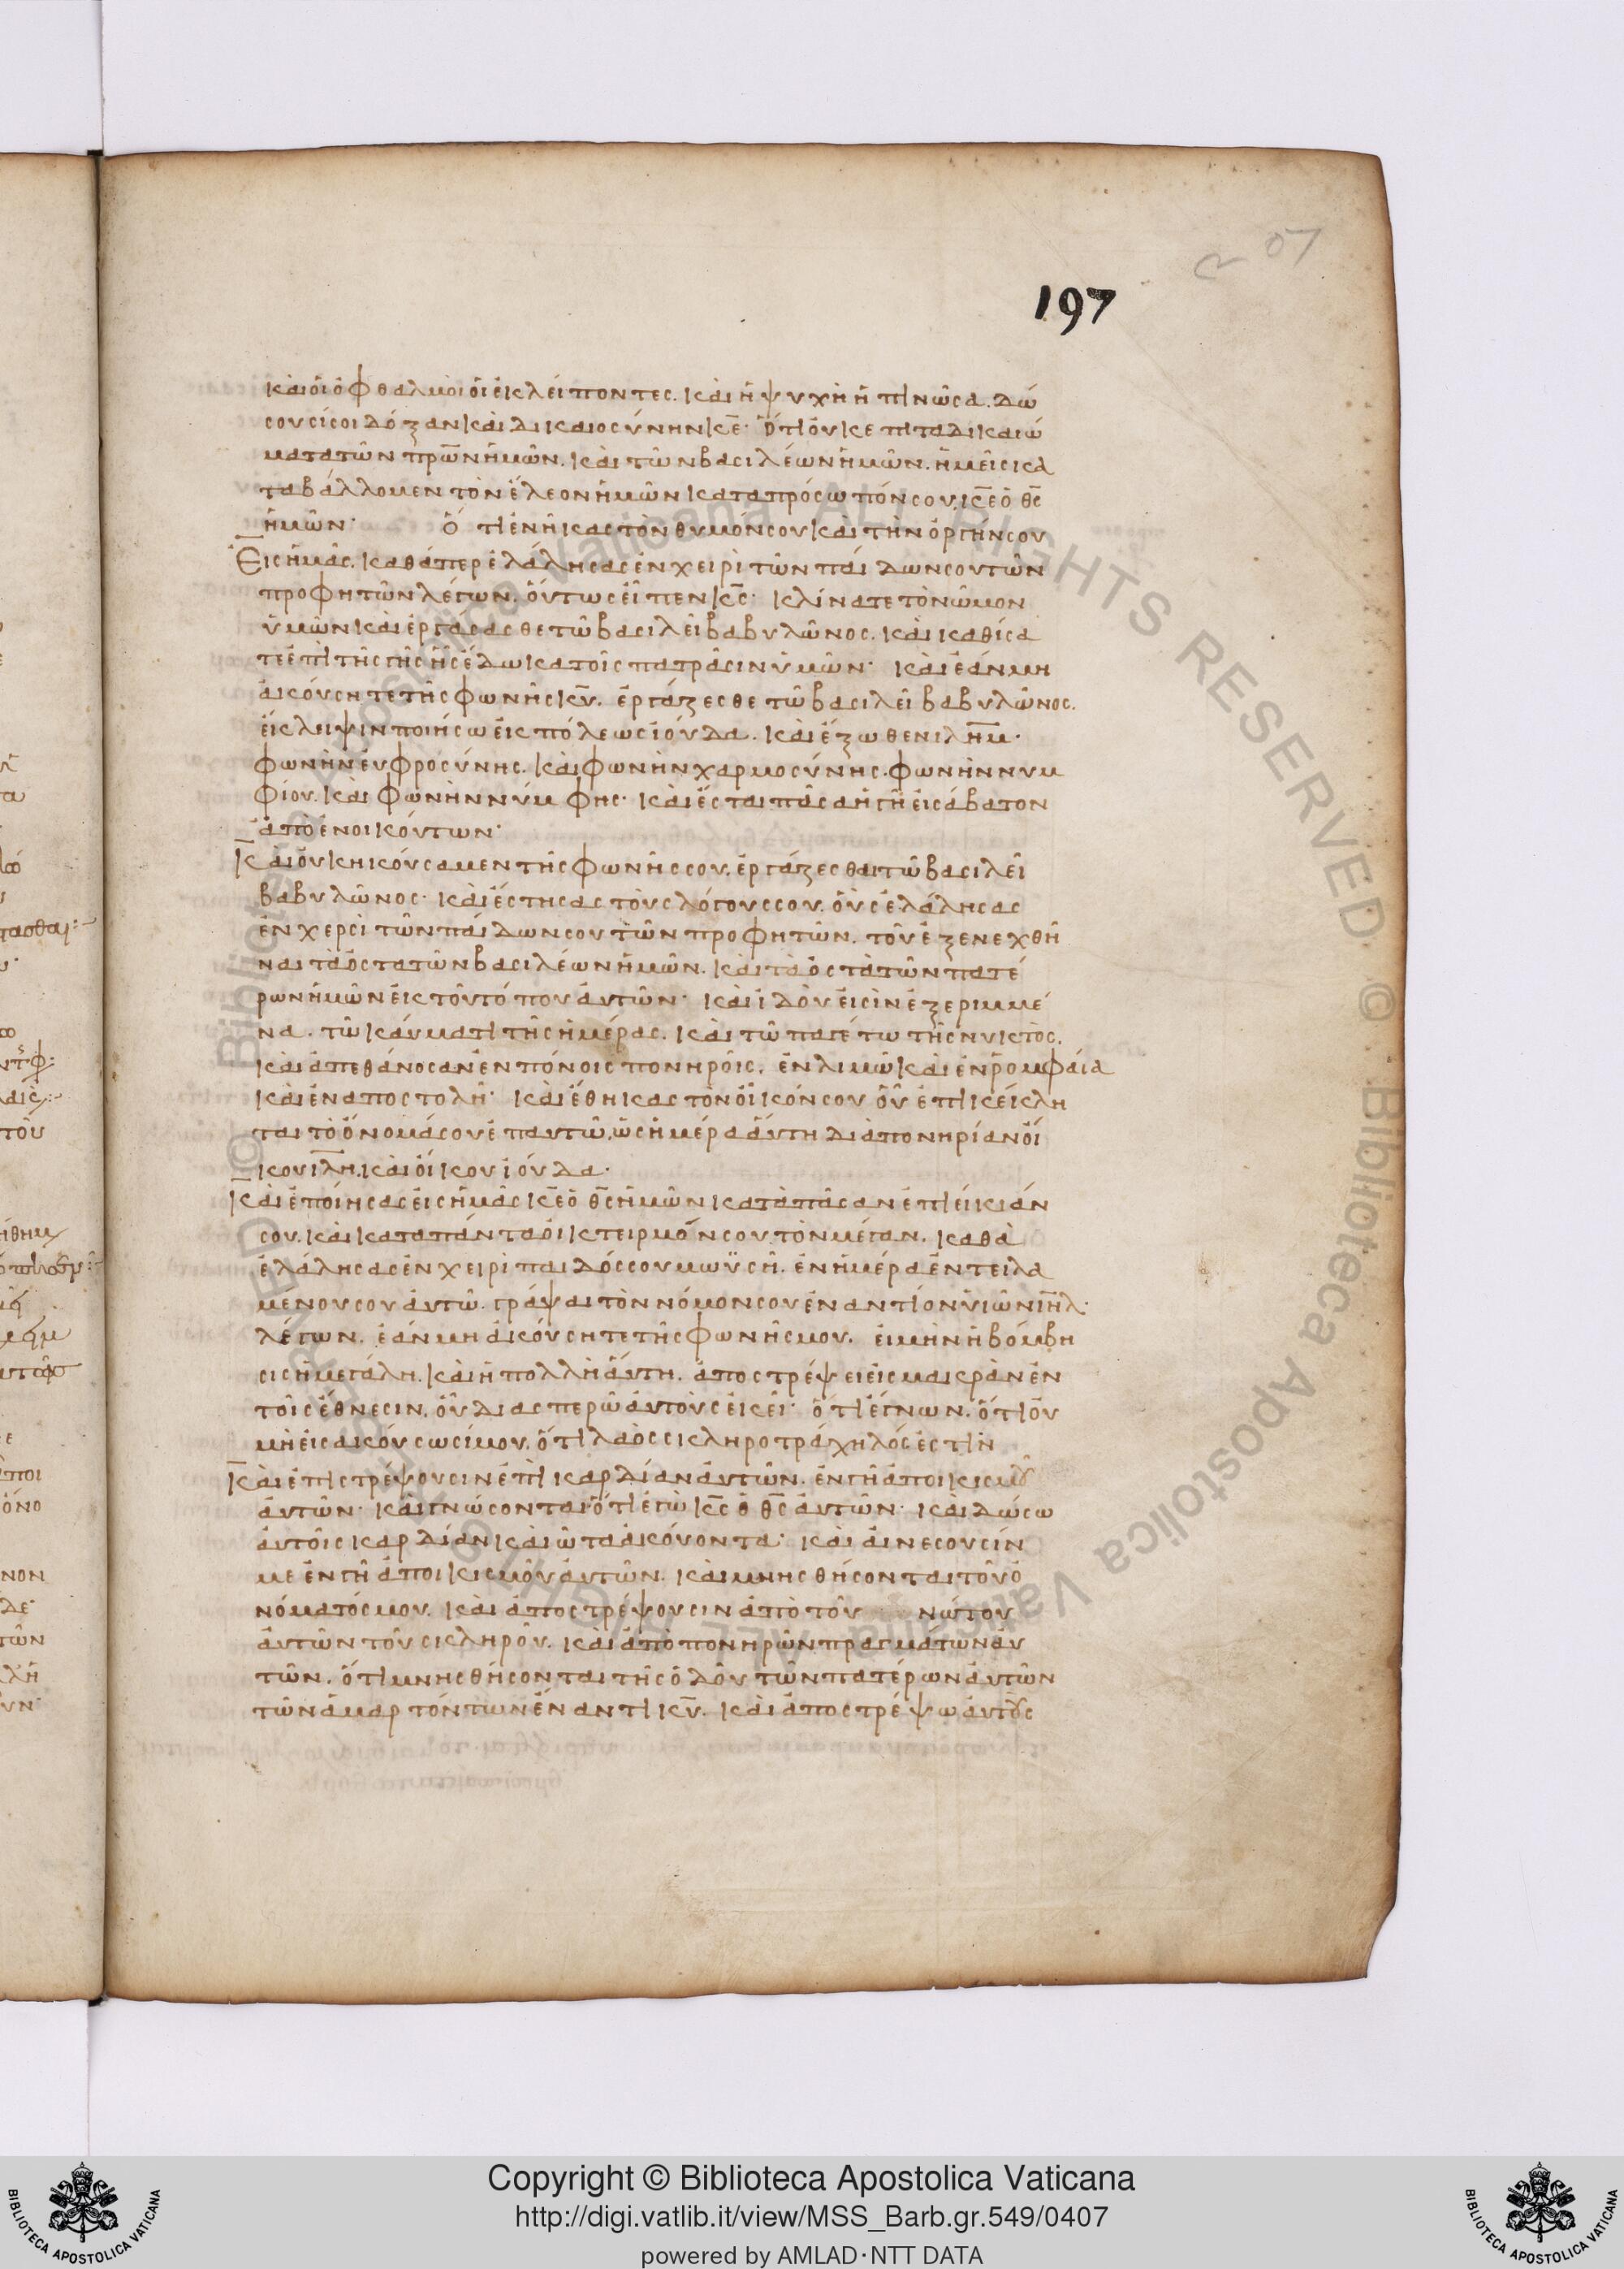 207
197
καὶ οἱ ὀφθαλμοὶ οἱ ἐκλείποντες. καὶ ἡ ψυχὴ ἡ πινῶσα. δώ
σουσί σοι δόξαν καὶ δικαιοσύνην κ̅ε̅· ὅτι οὐκ ἐπι τα δικαιώ
ματα τῶν π̅ρ̅ω̅ν ἡμῶν. καὶ τῶν βασιλέων ἡμῶν. ἡμεῖς κα
ταβάλλομεν τὸν ἔλεον ἡμῶν κατα πρόσωπόν σου κ̅ε̅ ὁ θ̅ς̅
ἡμῶν· ὅτι ἐνῆκας τὸν θυμόν σου καὶ τὴν ὀργήν σου
Εἰς ἡμᾶς. καθάπερ ἐλάλησας ἐν χειρὶ τῶν παίδων σου τῶν
προφητῶν λέγων. οὕτως εἶπεν κ̅ς̅· κλίνατε τὸν ὦμον
ὑμῶν καὶ ἐργάσασθε τῶ βασιλεῖ βαβυλῶνος. καὶ καθίσα
τε ἐπὶ τῆς γῆς ἧς ἔδωκα τοῖς πατράσιν ὑμῶν· καὶ ἐάν μη
ἀκούσητε τῆς φωνῆς κ̅υ̅. ἐργάζεσθε τῶ βασιλεῖ βαβυλῶνος.
ἔκλειψιν ποιήσω ἐκ πόλεως ἰούδα. καὶ ἔξωθεν ι̅λ̅η̅μ·
φωνὴν ἐυφροσύνης. καὶ φωνὴν χαρμοσύνης. φωνὴν νυμ
φίου. καὶ φωνὴν νύμφης· καὶ ἔσται πᾶσα ἡ γῆ εἰς άβατον
ἀπὸ ἐνοικούντων·
Καὶ οὐκ ηκούσαμεν τῆς φωνῆς σου. ἐργάζεσθαι τῶ βασιλεῖ
βαβυλῶνος· καὶ ἔστησας τοὺς λόγους σου. οὓς ἐλάλησας
ἐν χερσὶ τῶν παίδων σου τῶν προφητῶν. τοῦ ἐξενεχθῆ
ναι τὰ ὀστα τῶν βασιλέων ἡμῶν. καὶ τὰ ὀστὰ τῶν πατέ
ρων ἡμῶν ἐκ τοῦ τόπου ἀυτῶν· καὶ ἰδοὺ εἰσὶν ἐξεριμμέ
να. τῶ καύματι τῆς ἡμέρας. καὶ τῶ παγέτω τῆς νυκτὸς.
καὶ ἀπεθάνοσαν ἐν πόνοις πονηροῖς. ἐν λιμῶ καὶ ἐν ῥομφαία
καὶ ἐν αποστολῆ· καὶ ἔθηκας τὸν οἶκόν σου οὗ ἐπικέκλη
ται τὸ ὄνομά σου ἐπ αυτῶ. ὡς ἡμέρα ἅυτη διὰ πονηρίαν οἴ
κου ι̅λ̅η. καὶ οἴκου ἰούδα·
Καὶ ἐποίησας εἰς ἡμᾶς κ̅ε̅ ὁ θ̅ς̅ ἡμῶν κατὰ πᾶσαν ἐπιείκιάν
σου. καὶ κατα πάντα οἰκτειρμόν σου τὸν μέγαν. καθὰ
ἐλάλησας ἐν χειρὶ παιδός σου μωϋσῆ. ἐν ἡμέρα ἐντειλα
μένου σου ἀυτῶ. γράψαι τὸν νόμον σου ἐναντίον ὑιῶν ι̅η̅λ·
λέγων. ἐάν μη ἀκούσητε τῆς φωνῆς μου. εἰ μὴν ἡ βόμβη
σις ἡ μεγάλη. καὶ ἡ πολλὴ ἅυτη. ἀποστρέψει εἰς μακρὰν ἐν
τοῖς ἔθνεσιν. οὗ διασπερῶ ἀυτοὺς ἐκεῖ· ὅτι ἔγνων. ὅτι οὐ
μὴ εἰσακούσωσί μου. ὅτι λαὸς σκληροτράχηλός ἐστιν
Καὶ ἐπιστρέψουσιν ἐπὶ καρδίαν ἀυτῶν. ἐν γῆ ἀποικισμοῦ
ἀυτῶν· καὶ γνώσονται ὅτι ἐγὼ κ̅ς̅ ὁ θ̅ς̅ ἀυτῶν· καὶ δώσω
ἀυτοῖς καρδίαν καὶ ὦτα ἀκόυοντα· καὶ ἀινεσουσίν
με ἐν γῆ ἀποικισμοῦ ἀυτῶν. καὶ μνησθήσονται τοῦ ὀ
νόματός μου. καὶ ἀποστρέψουσιν ἀπὸ τοῦ νώτου
ἀυτῶν τοῦ σκληροῦ. καὶ ἀπὸ πονηρῶν πραγμάτων ἀυ
τῶν. ὅτι μνησθήσονται τῆς ὁδοῦ τῶν πατέρων ἀυτῶν
τῶν ἁμαρτόντων ἔναντι κ̅υ̅. καὶ ἀποστρέψω ἀυτοὺς
Copyright © Biblioteca Apostolica Vaticana
http://digi.vatlib.it/view/MSS_Barb.gr.549/0407
powered by AMLAD·NTT DATA